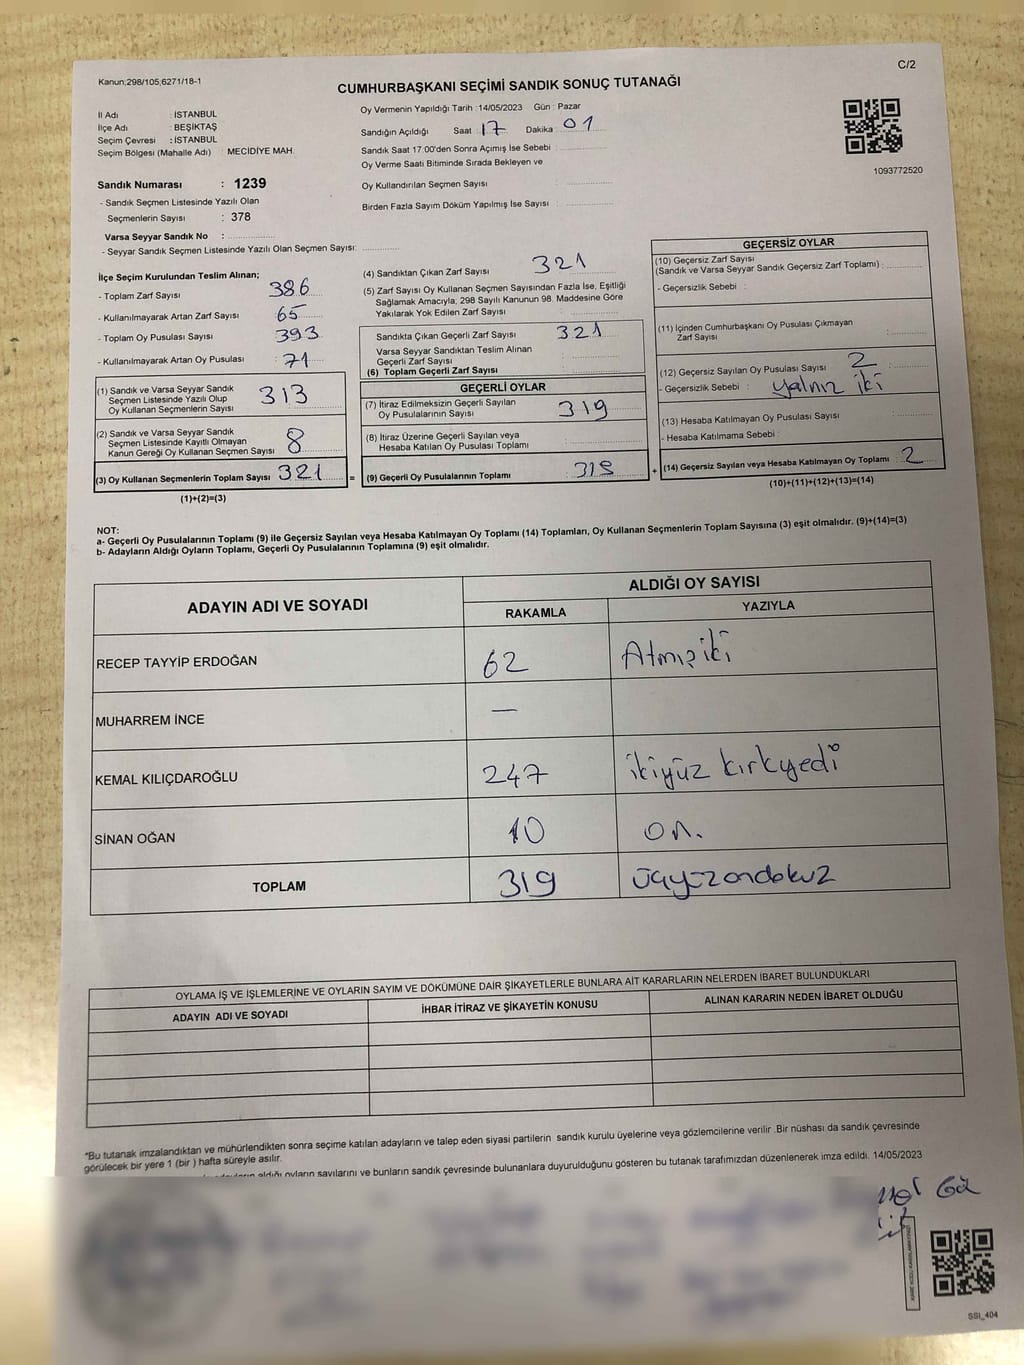 Kanun;298/105,6271/18-1
C/2
CUMHURBAŞKANI SEÇİMİ SANDIK SONUÇ TUTANAĞI
İl Adı : İSTANBUL
İlçe Adı : BEŞİKTAŞ
Seçim Çevresi : İSTANBUL
Seçim Bölgesi (Mahalle Adı) : MECİDİYE MAH.
Sandık Numarası : 1239
- Sandık Seçmen Listesinde Yazılı Olan
Seçmenlerin Sayısı : 378
Varsa Seyyar Sandık No :
- Seyyar Sandık Seçmen Listesinde Yazılı Olan Seçmen Sayısı:
Oy Vermenin Yapıldığı Tarih :14/05/2023 Gün : Pazar
Sandığın Açıldığı Saat 17 Dakika 01
Sandık Saat 17.00'den Sonra Açımış İse Sebebi :
Oy Verme Saati Bitiminde Sırada Bekleyen ve
Oy Kullandırılan Seçmen Sayısı :
Birden Fazla Sayım Döküm Yapılmış İse Sayısı :
1093772520
İlçe Seçim Kurulundan Teslim Alınan;
- Toplam Zarf Sayısı : 386
- Kullanılmayarak Artan Zarf Sayısı : 65
- Toplam Oy Pusulası Sayısı : 393
- Kullanılmayarak Artan Oy Pusulası : 71
(1) Sandık ve Varsa Seyyar Sandık
Seçmen Listesinde Yazılı Olup
Oy Kullanan Seçmenlerin Sayısı : 313
(2) Sandık ve Varsa Seyyar Sandık
Seçmen Listesinde Kayıtlı Olmayan
Kanun Gereği Oy Kullanan Seçmen Sayısı : 8
(3) Oy Kullanan Seçmenlerin Toplam Sayısı : 321
(1)+(2)=(3)
(4) Sandıktan Çıkan Zarf Sayısı : 321
(5) Zarf Sayısı Oy Kullanan Seçmen Sayısından Fazla İse, Eşitliği
Sağlamak Amacıyla, 298 Sayılı Kanunun 98. Maddesine Göre
Yakılarak Yok Edilen Zarf Sayısı :
Sandıkta Çıkan Geçerli Zarf Sayısı : 321
Varsa Seyyar Sandıktan Teslim Alınan
Geçerli Zarf Sayısı :
(6) Toplam Geçerli Zarf Sayısı :
GEÇERLİ OYLAR
(7) İtiraz Edilmeksizin Geçerli Sayılan
Oy Pusulalarının Sayısı : 319
(8) İtiraz Üzerine Geçerli Sayılan veya
Hesaba Katılan Oy Pusulası Toplamı :
= (9) Geçerli Oy Pusulalarının Toplamı : 319
GEÇERSİZ OYLAR
(10) Geçersiz Zarf Sayısı
(Sandık ve Varsa Seyyar Sandık Geçersiz Zarf Toplamı) :
- Geçersizlik Sebebi :
(11) İçinden Cumhurbaşkanı Oy Pusulası Çıkmayan
Zarf Sayısı :
(12) Geçersiz Sayılan Oy Pusulası Sayısı : 2
- Geçersizlik Sebebi : yalnız iki
(13) Hesaba Katılmayan Oy Pusulası Sayısı :
- Hesaba Katılmama Sebebi :
+ (14) Geçersiz Sayılan veya Hesaba Katılmayan Oy Toplamı : 2
(10)+(11)+(12)+(13)=(14)
NOT:
a- Geçerli Oy Pusulalarının Toplamı (9) ile Geçersiz Sayılan veya Hesaba Katılmayan Oy Toplamı (14) Toplamları, Oy Kullanan Seçmenlerin Toplam Sayısına (3) eşit olmalıdır. (9)+(14)=(3)
b- Adayların Aldığı Oyların Toplamı, Geçerli Oy Pusulalarının Toplamına (9) eşit olmalıdır.
ADAYIN ADI VE SOYADI ALDIĞI OY SAYISI
RAKAMLA YAZIYLA
RECEP TAYYİP ERDOĞAN 62 Atmışiki
MUHARREM İNCE —
KEMAL KILIÇDAROĞLU 247 ikiyüz kırkyedi
SİNAN OĞAN 10 on.
TOPLAM 319 üçyüzondokuz
OYLAMA İŞ VE İŞLEMLERİNE VE OYLARIN SAYIM VE DÖKÜMÜNE DAİR ŞİKAYETLERLE BUNLARA AİT KARARLARIN NELERDEN İBARET BULUNDUKLARI
ADAYIN ADI VE SOYADI İHBAR İTİRAZ VE ŞİKAYETİN KONUSU ALINAN KARARIN NEDEN İBARET OLDUĞU
*Bu tutanak imzalandıktan ve mühürlendikten sonra seçime katılan adayların ve talep eden siyasi partilerin sandık kurulu üyelerine veya gözlemcilerine verilir .Bir nüshası da sandık çevresinde
görülecek bir yere 1 (bir ) hafta süreyle asılır.
aldığı oyların sayılarını ve bunların sandık çevresinde bulunanlara duyurulduğunu gösteren bu tutanak tarafımızdan düzenlenerek imza edildi. 14/05/2023
SSI_404